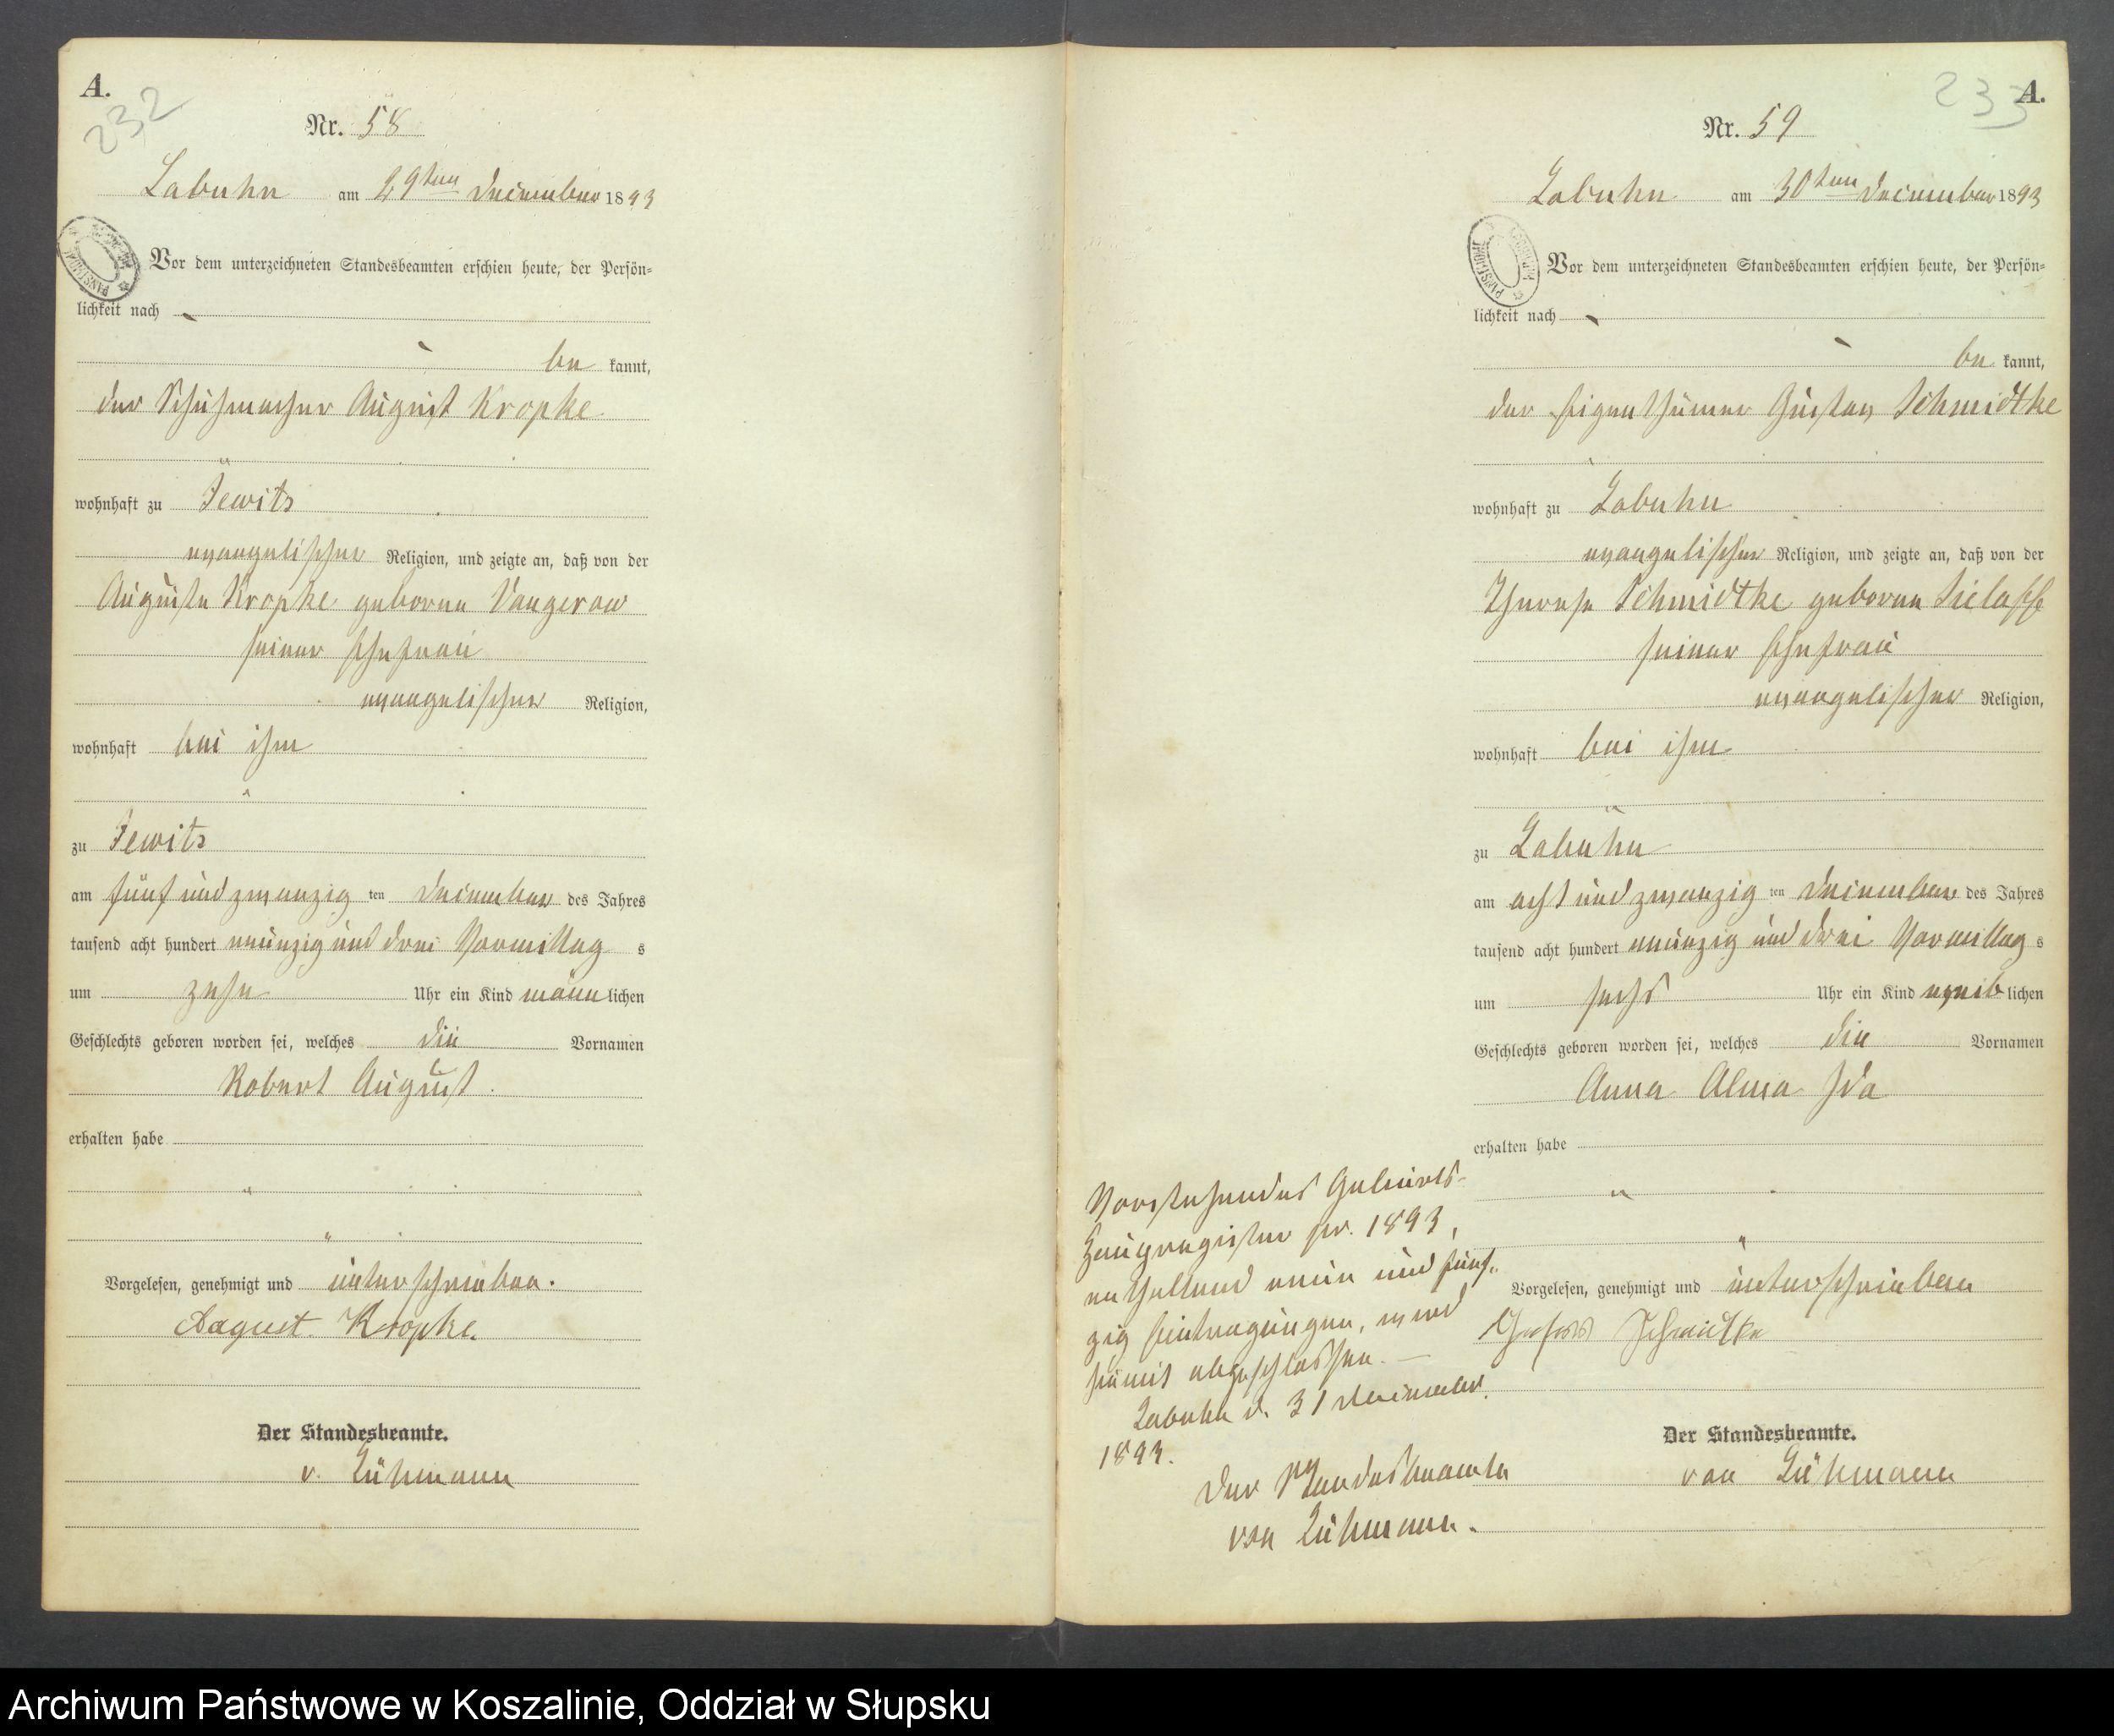 A.
232
Nr. 58
Labuhn am 29ten December 1893
Vor dem unterzeichneten Standesbeamten erschien heute, der Persön-
lichkeit nach
be kannt,
der Schuhmacher August Kropke
wohnhaft zu Jewits
evangelischer Religion, und zeigte an, daß von der
Auguste Kropke geborene Vangerow
seiner Ehefrau
evangelischer Religion,
wohnhaft bei ihm
zu Jewits
am fünf und zwanzig ten December des Jahres
tausend acht hundert neunzig und drei Vormittag s
um zehn Uhr ein Kind männ lichen
Geschlechts geboren worden sei, welches die Vornamen
Robert August
erhalten habe
Vorgelesen, genehmigt und unterschrieben.
August Kropke.
Der Standesbeamte.
v. Lühmann
233
A.
Nr. 59
Labuhn am 30ten December 1893
Vor dem unterzeichneten Standesbeamten erschien heute, der Persön-
lichkeit nach
be kannt,
der Eigenthümer Gustav Schmidtke
wohnhaft zu Labuhn
evangelischer Religion, und zeigte an, daß von der
Therese Schmidtke geborene Sielaff
seiner Ehefrau
evangelischer Religion,
wohnhaft bei ihm
zu Labuhn
am acht und zwanzig ten December des Jahres
tausend acht hundert neunzig und drei Vormittag s
um sechs Uhr ein Kind weib lichen
Geschlechts geboren worden sei, welches die Vornamen
Anna Alma Ida
erhalten habe
Vorgelesen, genehmigt und unterschrieben
Schmidtke
Der Standesbeamte.
von Lühmann
Vorstehendes Geburts-
Hauptregister pr. 1893,
enthaltend neun und fünf-
zig Eintragungen, wird
hiermit abgeschlossen.—
Labuhn d. 31 December.
1893.
Der Standesbeamte
von Lühmann.
Archiwum Państwowe w Koszalinie, Oddział w Słupsku